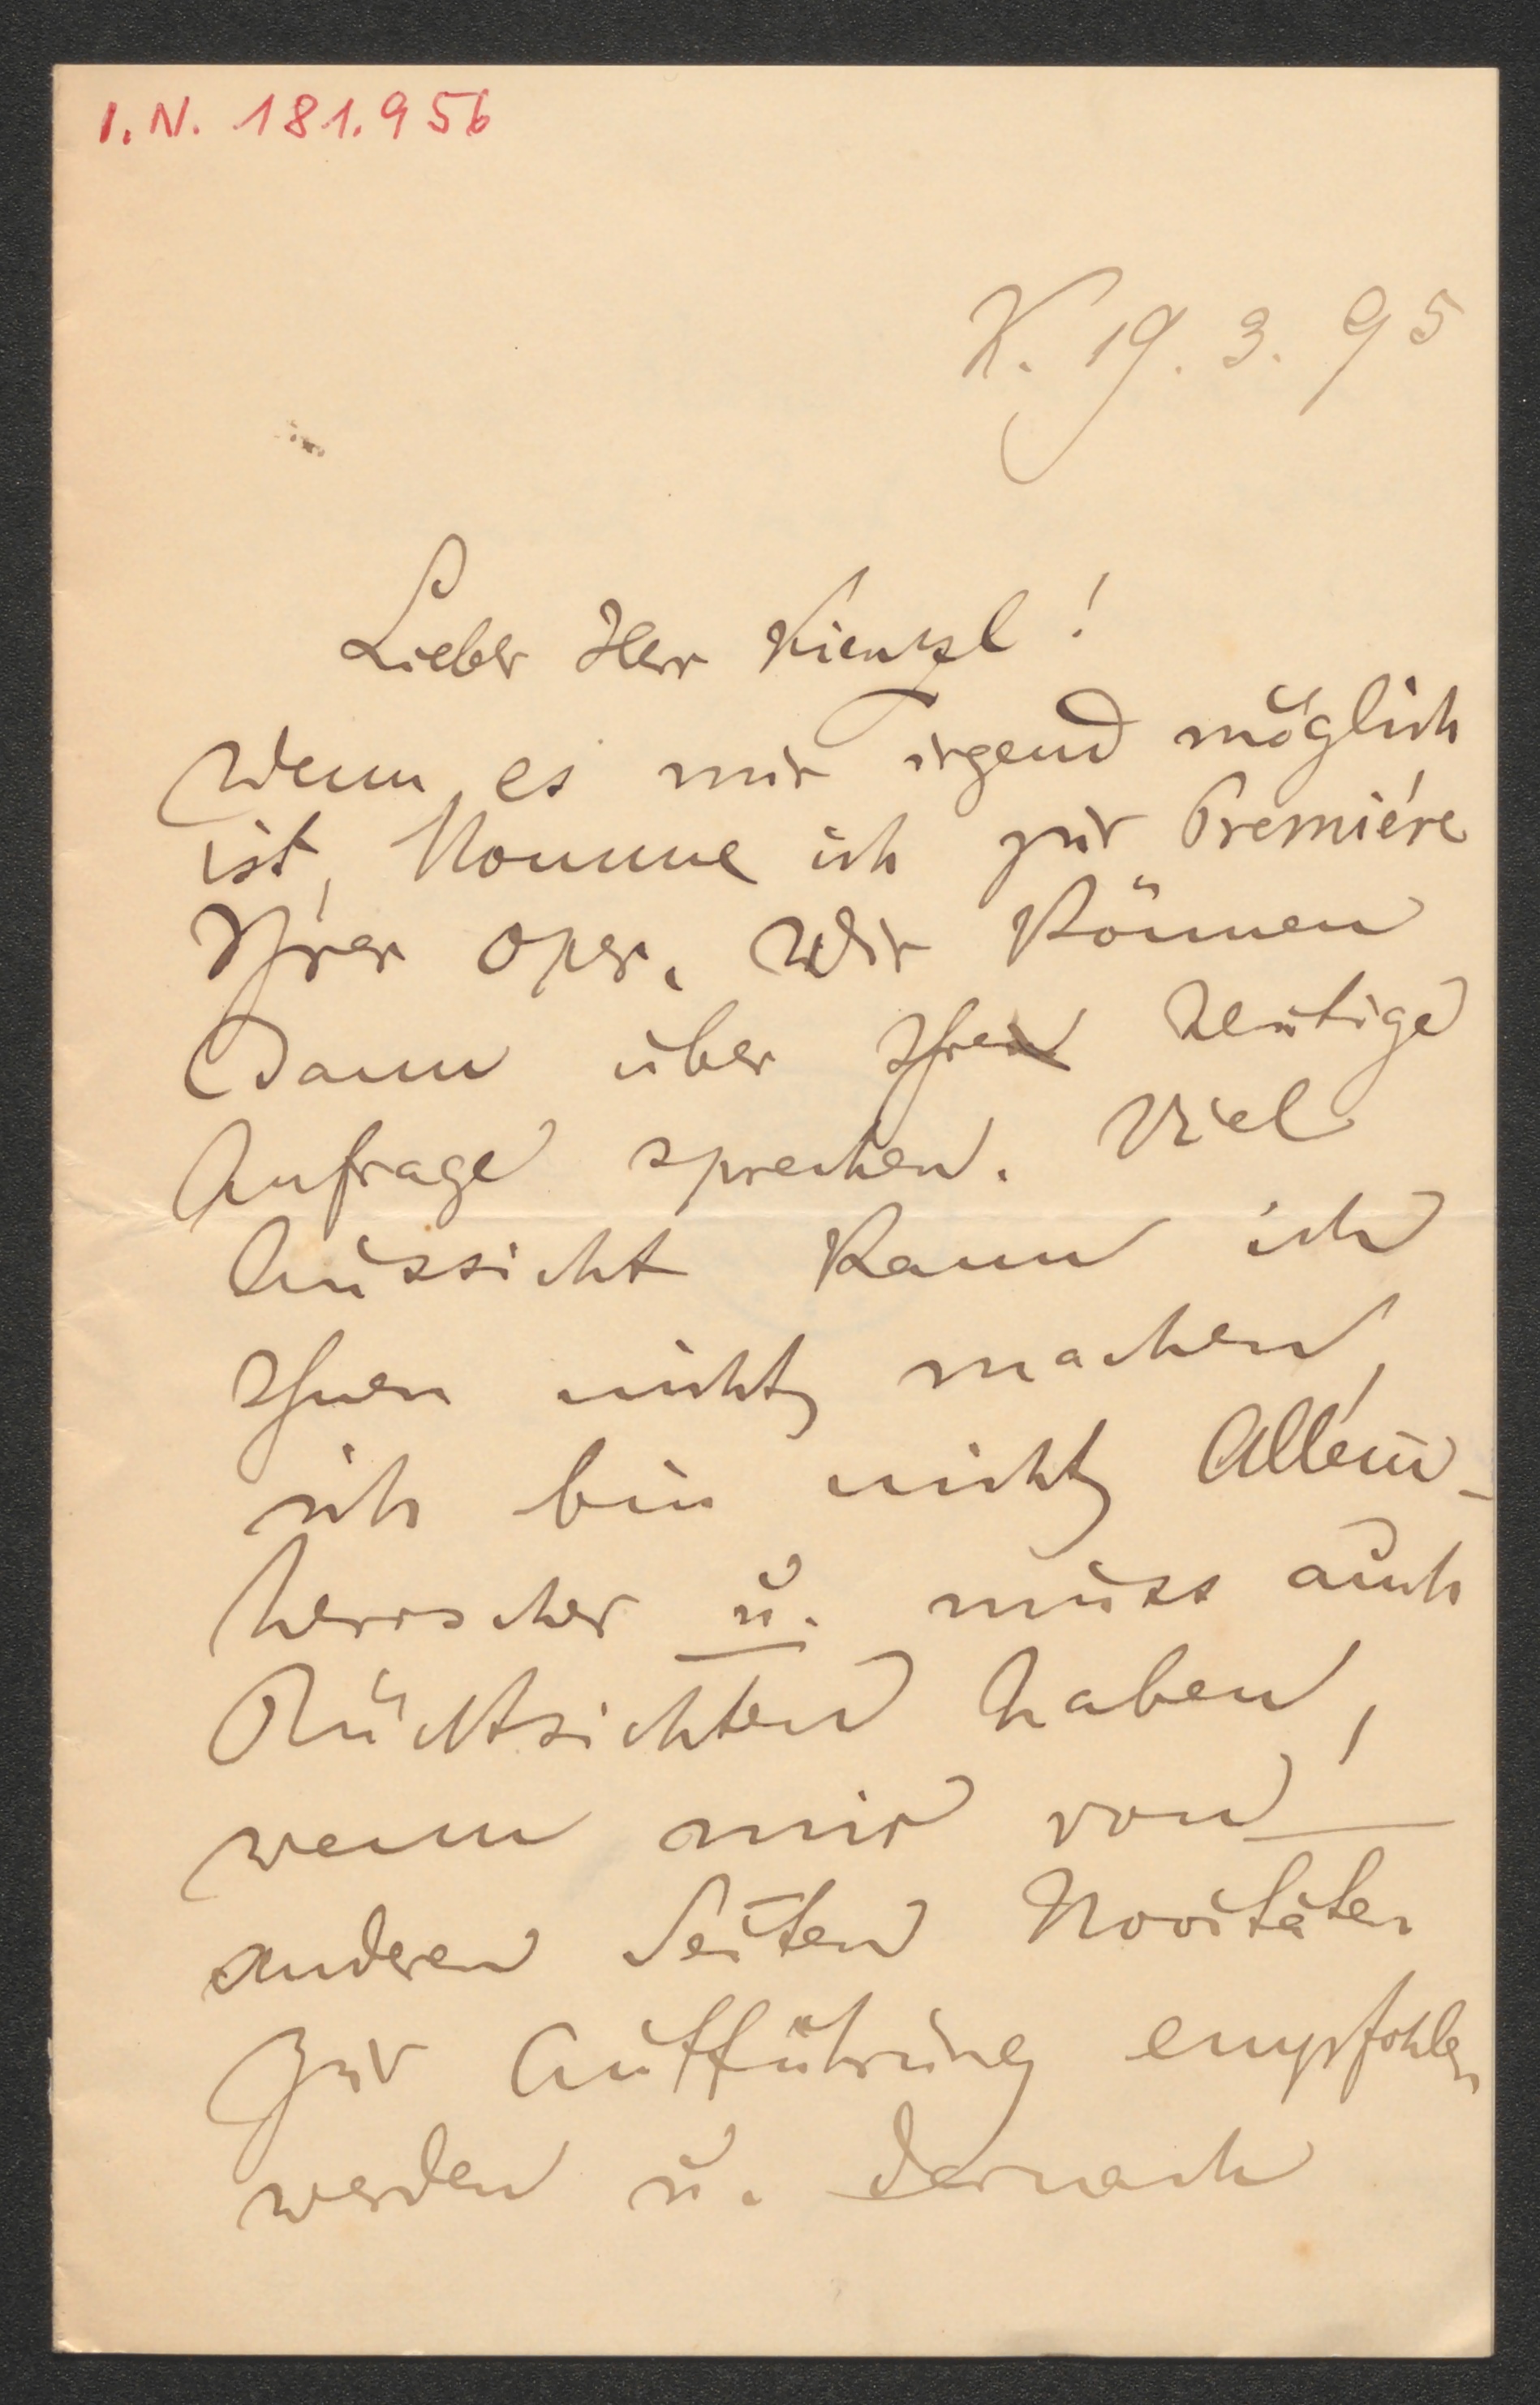 I.N. 181.956
K. 19. 3. 95
Lieber Herr Kienzl!
Wenn es mir irgend möglich
ist, komme ich zur Premiére
Ihrer Oper. Wir können
dann über Ihre heutige
Anfrage sprechen. Viel
Aussicht kann ich
Ihnen nicht machen,
ich bin nicht Allein-
herrscher u. muss auch
Rücksichten haben,
wenn mir von
anderen Seiten Novitäten
zur Aufführung empfohlen
werden u. darnach